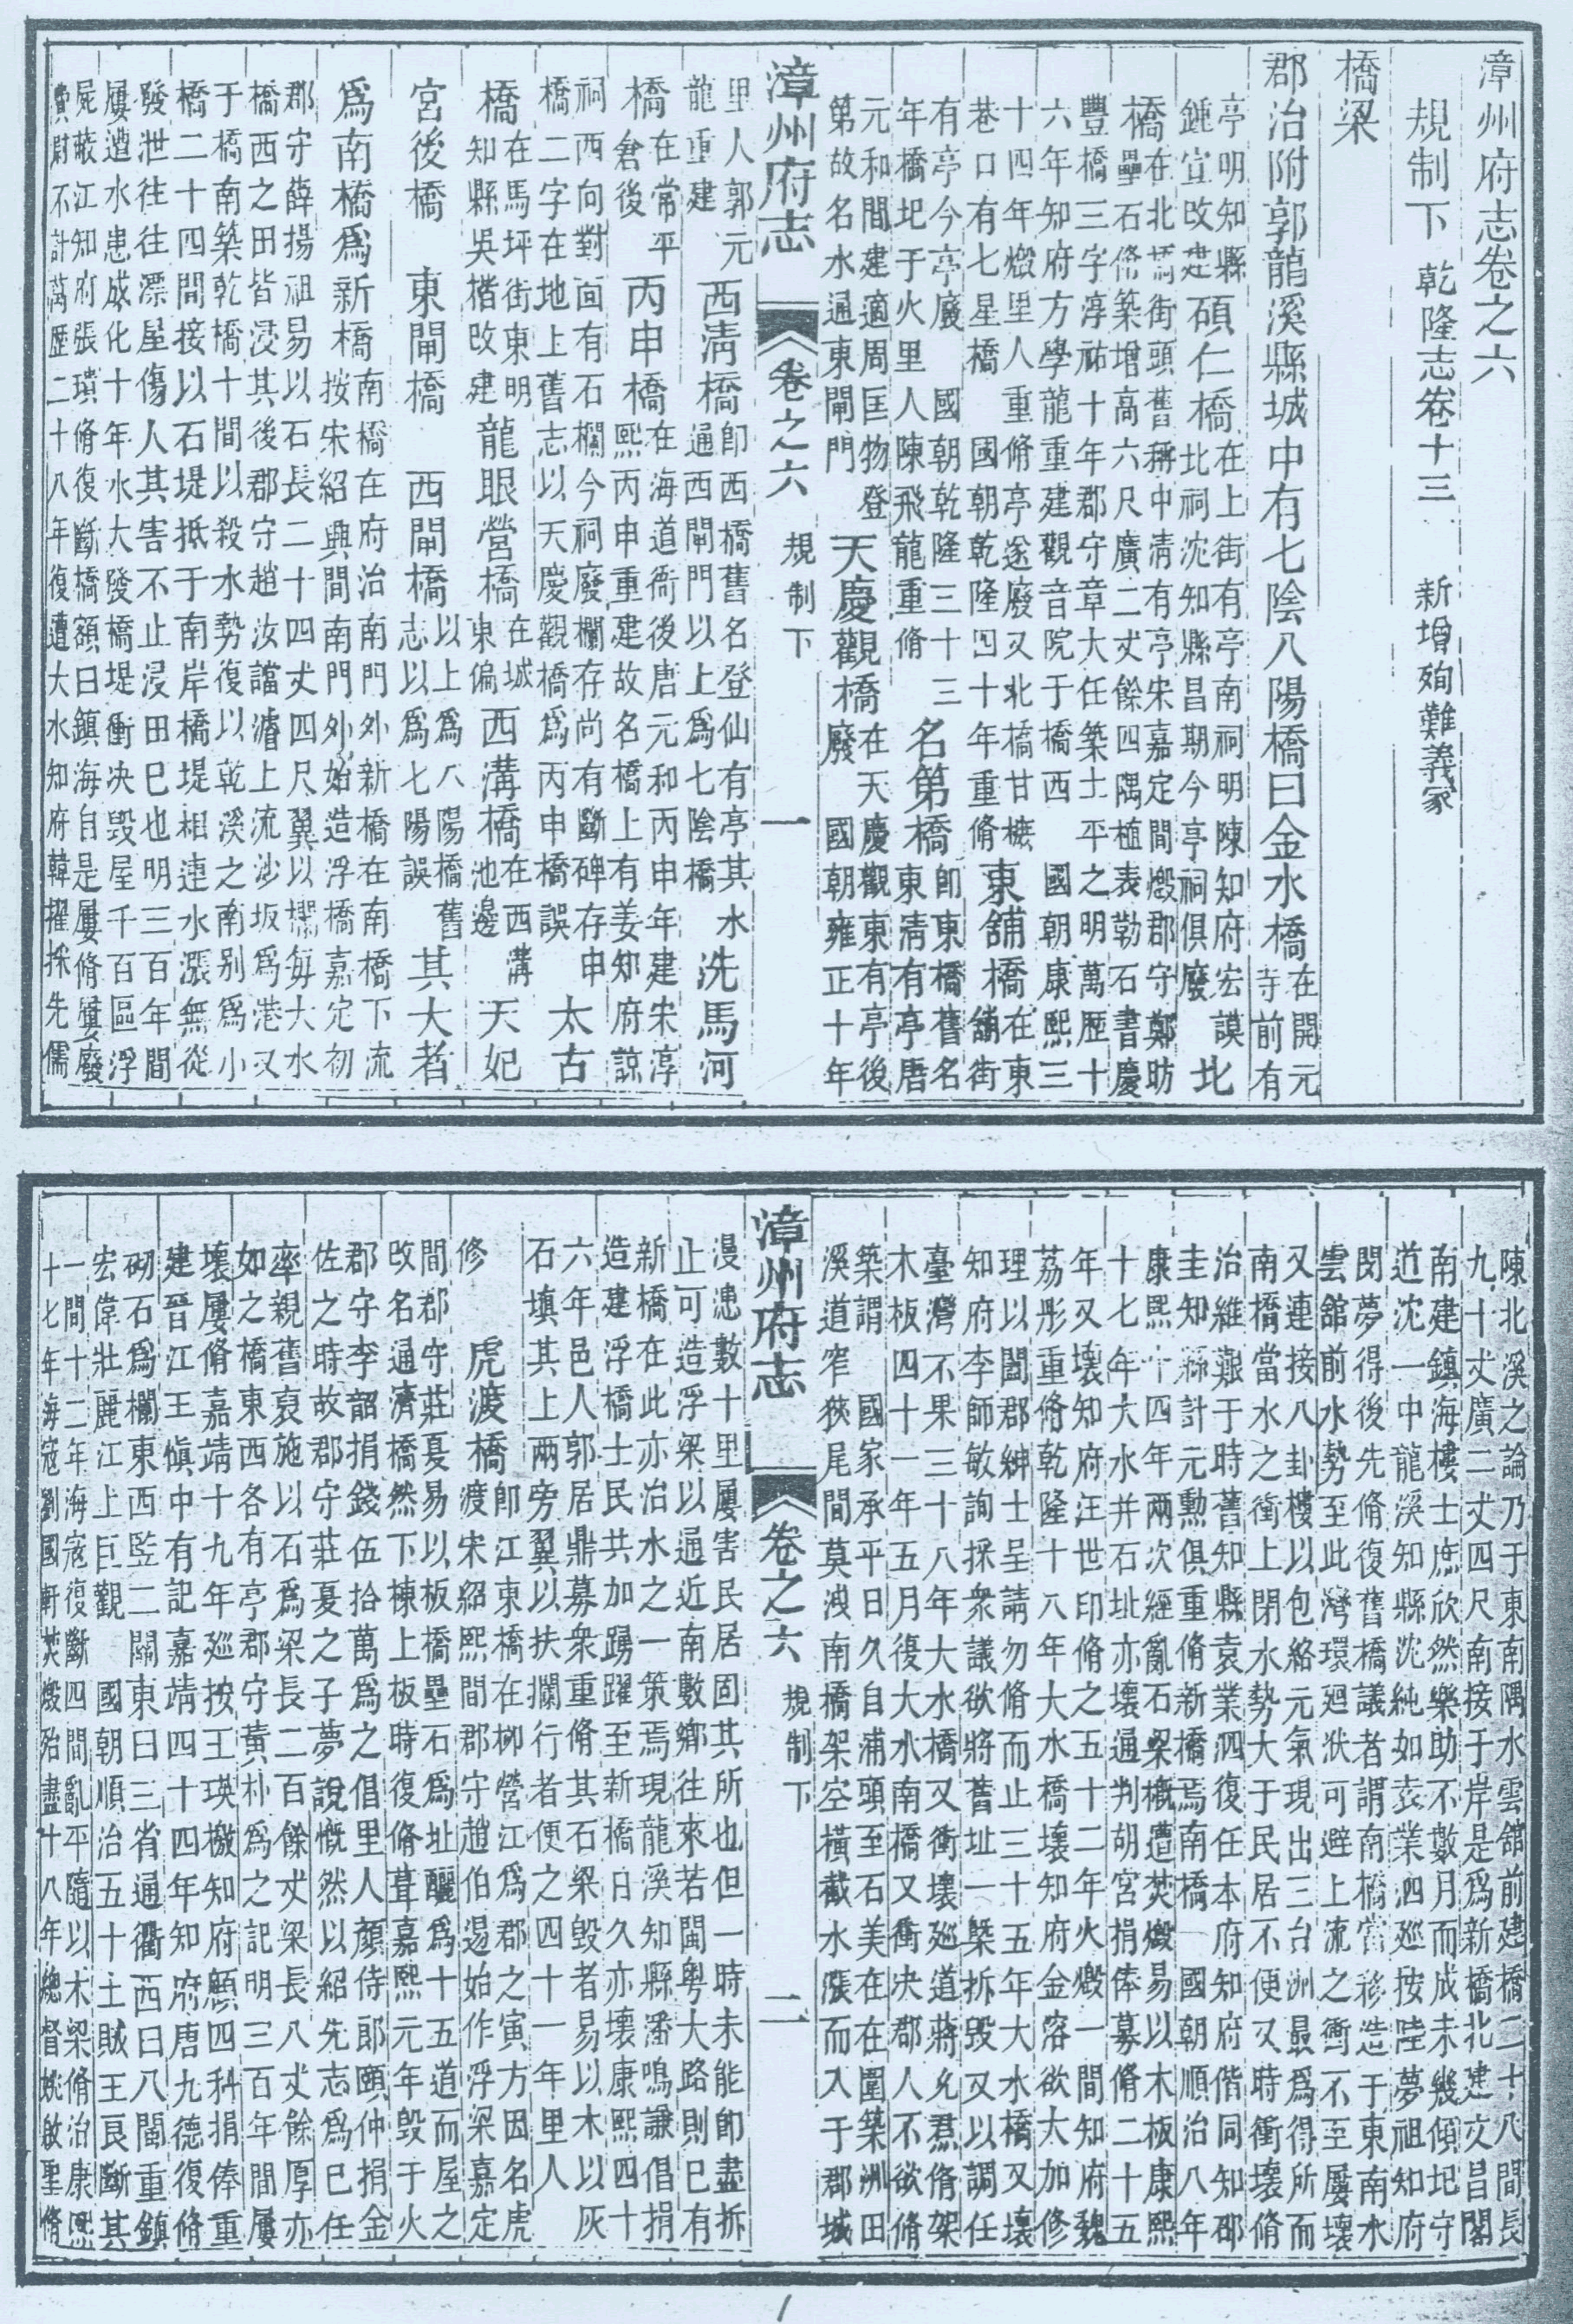 漳州府志卷之六
規制下 乾隆志卷十三 新增殉難義冢
橋梁
郡治附郭龍溪縣城中有七陰八陽橋曰金水橋在開元
寺前有
亭明知縣碩仁橋在上街有亭南祠明陳知府宏謨
鍾宣改建北祠沈知縣昌期今亭祠俱廢北
橋在北橋街頭舊稱中清有亭宋嘉定間燬郡守鄭昉
橋壘石脩築增高六尺廣二丈餘四隅植表勒石書慶
豐橋三字淳祐十年郡守章大任築士平之明萬歷十
六年知府方學龍重建觀音院于橋西 國朝康熙三
十四年燬里人重脩亭遂廢又北橋甘棷東舖橋在東
巷口有七星橋 國朝乾隆四十年重脩 舖街
有亭今亭廢 國朝乾隆三十三名第橋卽東橋舊名
年橋圯于火里人陳飛龍重脩 東清有亭唐
元和間建適周匡物登天慶觀橋在天慶觀東有亭後
第故名水通東閘門 廢 國朝雍正十年
漳州府志 卷之六 規制下 一
里人郭元西淸橋卽西橋舊名登仙有亭其水洗馬河
龍重建 通西閘門以上爲七陰橋
橋在常平丙申橋在海道衙後唐元和丙申年建宋淳
倉後 熙丙申重建故名橋上有姜知府諒
祠西向對面有石欄今祠廢欄存尚有斷碑存申太古
橋二字在地上舊志以天慶觀橋爲丙申橋誤
橋在馬坪街東明龍眼營橋在城西溝橋在西溝天妃
知縣吳楷改建 東偏 池邊
宮後橋 東閘橋 西閘橋以上爲八陽橋舊其大者
志以爲七陽誤
爲南橋爲新橋南橋在府治南門外新橋在南橋下流
按宋紹興間南門外始造浮橋嘉定初
郡守薛揚祖易以石長二十四丈四尺翼以欄每大水
橋西之田皆浸其後郡守趙汝讜濬上流沙坂爲港又
于橋南築乾橋十間以殺水勢復以乾溪之南別爲小
橋二十四間接以石堤抵于南岸橋堤相連水漲無從
發泄往往漂屋傷人其害不止浸田巳也明三百年間
屢遭水患成化十年水大發橋堤衝决毀屋千百區浮
屍蔽江知府張璝脩復斷橋額曰鎮海自是屢脩屢廢
費尉不計萬歷二十八年復遭大水知府韓擢採先儒
陳北溪之論乃于東南隅水雲舘前建橋二十八間長
九十丈廣二丈四尺南接于岸是爲新橋北建文昌閣
南建鎮海樓士庶欣然樂助不數月而成未幾傾圯守
道沈一中龍溪知縣沈純如袁業泗巡按陸夢祖知府
閔夢得後先脩復舊橋議者謂南橋當移造于東南水
雲舘前水勢至此灣環迴洑可避上流之衝不至屢壞
又連接八卦樓以包絡元氣現出三台洲最爲得所而
南橋當水之衝上閉水勢大于民居不便又時衝壞脩
治維艱于時舊知縣袁業泗復任本府知府偕同知邵
圭知縣計元勳俱重脩新橋焉南橋 國朝順治八年
康熙十四年兩次經亂石梁槪遭焚燬易以木板康熙
十七年大水并石址亦壞通判胡宮捐俸募脩二十五
年又壞知府汪世印脩之五十二年火燬一間知府魏
荔彤重脩乾隆十八年大水橋壞知府金溶欲大加修
理以闔郡紳士呈請勿脩而止三十五年大水橋又壞
知府李師敏詢採衆議欲將舊址一槩拆毀又以調任
臺灣不果三十八年大水橋又衝壞巡道蔣允焄脩架
木板四十一年五月後大水南橋又衝决郡人不欲脩
築謂 國家承平日久自浦頭至石美在在圍築洲田
溪道窄狹尾閭莫洩南橋架空橫截水漲而入于郡城
漳州府志 卷之六 規制下 二
漫漶數十里屢害民居固其所也但一時未能卽盡拆
止可造浮梁以通近南數鄉往來若閩粤大路則巳有
新橋在此亦治水之一策焉現龍溪知縣潘鳴謙倡捐
造建浮橋士民共加踴躍至新橋日久亦壞康熙四十
六年邑人郭居鼎募衆重脩其石梁毀者易以木以灰
石填其上兩旁翼以扶攔行者便之四十一年里人
修 虎渡橋卽江東橋在柳營江爲郡之寅方因名虎
渡宋紹熙間郡守趙伯逷始作浮梁嘉定
間郡守莊夏易以板橋壘石爲址釃爲十五道而屋之
改名通濟橋然下棟上板時復脩葺嘉熙元年毀于火
郡守李韶捐錢伍拾萬爲之倡里人顏侍郎頤仲捐金
佐之時故郡守莊夏之子夢說慨然以紹先志爲巳任
率親舊裒施以石爲梁長二百餘丈梁長八丈餘厚亦
如之橋東西各有亭郡守黃朴爲之記明三百年間屢
壞屢脩嘉靖十九年巡按王瑛檄知府顧四科捐俸重
建晉江王愼中有記嘉靖四十四年知府唐九德復脩
砌石爲欄東西監二關東曰三省通衢西曰八閩重鎮
宏偉壯麗江上巨觀 國朝順治五十土賊王艮斷其
一間十二年海寇復斷四間亂平隨以木梁脩治康熙
十七年海寇劉國軒焚燬殆盡十八年總督姚啟聖脩